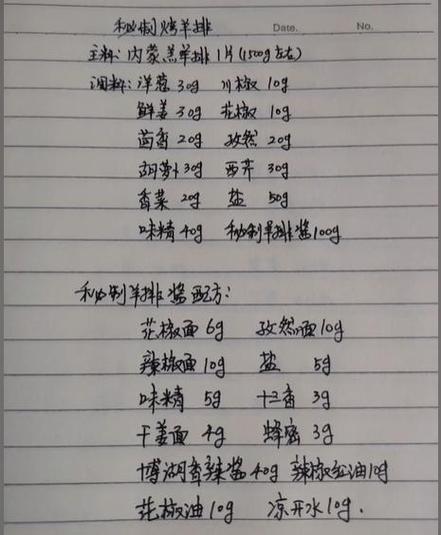 秘制烤羊排 Date. No.
主料: 内蒙羔羊排 1片(1500g左右)
调料: 洋葱 30g 川椒 10g
鲜姜 30g 花椒 10g
茴香 20g 孜然 20g
胡萝卜 30g 西芹 30g
香菜 20g 盐 50g
味精 40g 秘制羊排酱 100g
秘制羊排酱配方:
花椒面 6g 孜然面 10g
辣椒面 10g 盐 5g
味精 5g 十三香 3g
干姜面 4g 蜂蜜 3g
博湖香辣酱 40g 辣椒红油 10g
花椒油 10g 凉开水 10g.